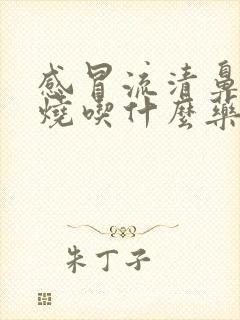 感冒流清鼻
燒喫什麼藥
朱丁子